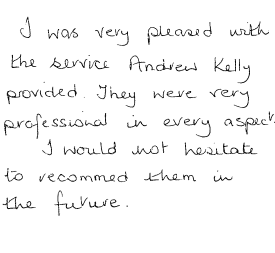 I was very pleased with
the service Andrew Kelly
provided. They were very
professional in every aspect.
I would not hesitate
to recommed them in
the future.